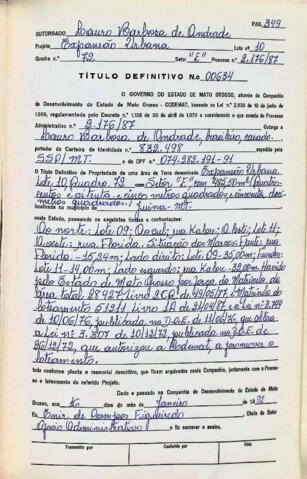 PAG. 349
OUTORGADO Lauro Barbosa de Andrade
Projeto Expansão Urbana Lote nº 10
Quadra nº 72 Setor "E" Processo 2.176/87
TÍTULO DEFINITIVO N.o 00634
O GOVERNO DO ESTADO DE MATO GROSSO, através da Companhia
de Desenvolvimento do Estado de Mato Grosso - CODEMAT, baseado na Lei nº 2.938 de 10 de junho
de 1969, regulamentada pelo Decreto n.º 1.138 de 30 de abril de 1970 e considerando o que consta do Processo
Administrativo n.º 2.176/87
Lauro Barbosa de Andrade, brasileiro, casado
portador da Carteira de Identidade n.º 832.498 expedido por
SSP/MT. e do CPF n.º 074.282.191-91
O Título Definitivo de Propriedade de uma área de Terra denominada Expansão Urbana
Lote 10 Quadra 72 com Setor "E" com
metros quadrados e cinquenta de-
címetros quadrados.
localizada no município de Juína-MT.
neste Estado, possuindo os seguintes limites e confrontações:
Ao norte: Lote 09; Ao sul: rua Kalou; A leste: Lote 11;
A oeste: rua Florida. Situação dos Marcos: Frente: rua
Florida - 15,24m; Lado direito: Lote 09-35,00m; Fundos:
Lote 11-14,00m; Lado esquerdo: rua Kalou
pelo Estado de Mato Grosso por força da Matrícula da
área total 28.427 Livro 2CR
loteamento 51311 Livro 1A
de 10/06/76, publicada no D.O.E. de 11/06/76, que altera
a Lei nº 3.307 de 10/12/72, publicada no D.O.E. de
26/12/72, que autorizou a Codemat, a promover o
loteamento.
tudo conforme planta e memorial descritivo, que ficam arquivados nesta Companhia, juntamente com o Processo
e loteamento do referido Projeto.
Dado e passado na Companhia de Desenvolvimento do Estado de Mato
Grosso, aos do mês de Janeiro de 19
Eu, Enir de Campos Figueiredo Chefe do Setor
Apoio Administrativo o fiz escrever e assino.
Transcrito por Conferido por Visto